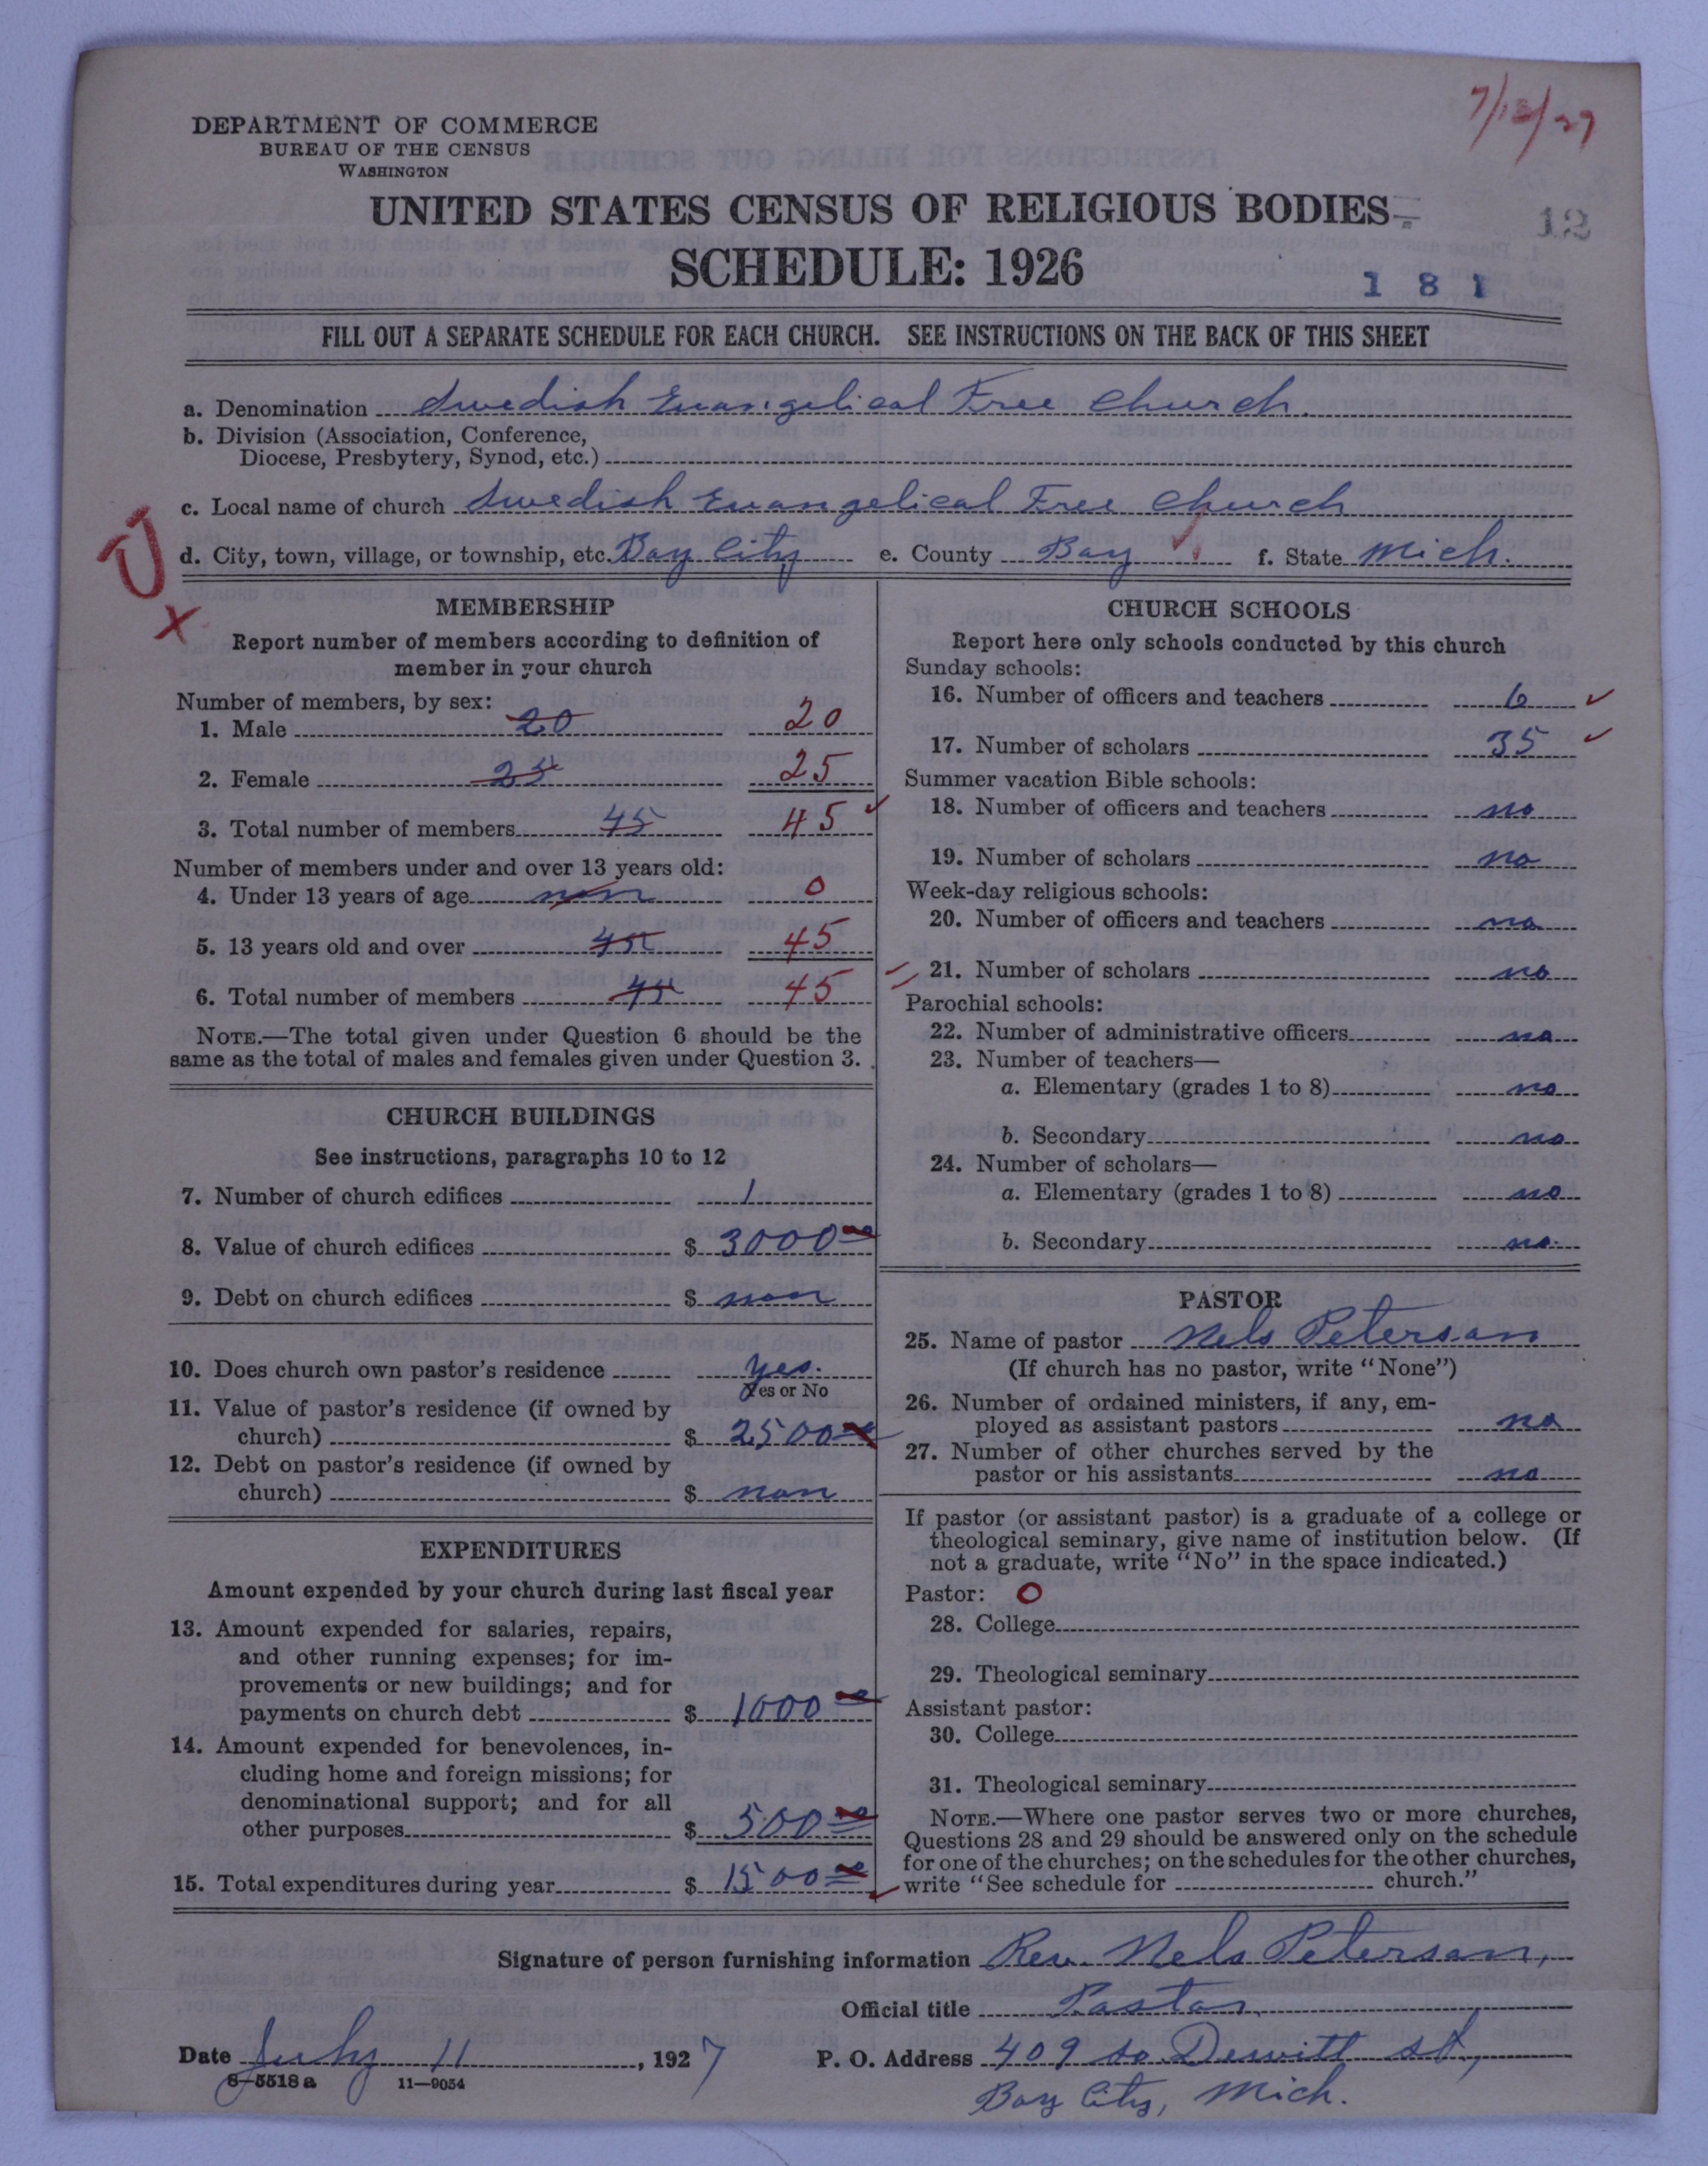 7/13/27
DEPARTMENT OF COMMERCE
BUREAU OF THE CENSUS
WASHINGTON
UNITED STATES CENSUS OF RELIGIOUS BODIES
12
SCHEDULE: 1926
1 8 1
FILL OUT A SEPARATE SCHEDULE FOR EACH CHURCH. SEE INSTRUCTIONS ON THE BACK OF THIS SHEET
a. Denomination Swedish Evangelical Free Church.
b. Division (Association, Conference,
Diocese, Presbytery, Synod, etc.)
c. Local name of church Swedish Evangelical Free Church
d. City, town, village, or township, etc. Bay City e. County Bay f. State Mich.
X
MEMBERSHIP
Report number of members according to definition of
member in your church
Number of members, by sex:
1. Male 20 20
2. Female 25 25
3. Total number of members 45 45
Number of members under and over 13 years old:
4. Under 13 years of age non 0
5. 13 years old and over 45 45
6. Total number of members 45 45
NOTE.—The total given under Question 6 should be the
same as the total of males and females given under Question 3.
CHURCH BUILDINGS
See instructions, paragraphs 10 to 12
7. Number of church edifices 1
8. Value of church edifices $ 3000 00
9. Debt on church edifices $ non
10. Does church own pastor's residence yes.
Yes or No
11. Value of pastor's residence (if owned by
church) $ 2500 00
12. Debt on pastor's residence (if owned by
church) $ non
EXPENDITURES
Amount expended by your church during last fiscal year
13. Amount expended for salaries, repairs,
and other running expenses; for im-
provements or new buildings; and for
payments on church debt $ 1000 00
14. Amount expended for benevolences, in-
cluding home and foreign missions; for
denominational support; and for all
other purposes $ 500 00
15. Total expenditures during year $ 1500 00
CHURCH SCHOOLS
Report here only schools conducted by this church
Sunday schools:
16. Number of officers and teachers 6
17. Number of scholars 35
Summer vacation Bible schools:
18. Number of officers and teachers no
19. Number of scholars no
Week-day religious schools:
20. Number of officers and teachers no
21. Number of scholars no
Parochial schools:
22. Number of administrative officers no
23. Number of teachers—
a. Elementary (grades 1 to 8) no
b. Secondary no
24. Number of scholars—
a. Elementary (grades 1 to 8) no
b. Secondary no.
PASTOR
25. Name of pastor Nels Peterson
(If church has no pastor, write "None")
26. Number of ordained ministers, if any, em-
ployed as assistant pastors no
27. Number of other churches served by the
pastor or his assistants no
If pastor (or assistant pastor) is a graduate of a college or
theological seminary, give name of institution below. (If
not a graduate, write "No" in the space indicated.)
Pastor: O
28. College
29. Theological seminary
Assistant pastor:
30. College
31. Theological seminary
NOTE.—Where one pastor serves two or more churches,
Questions 28 and 29 should be answered only on the schedule
for one of the churches; on the schedules for the other churches,
write "See schedule for church."
Signature of person furnishing information Rev. Nels Peterson,
Official title Pastor
Date July 11, 1927 P. O. Address 409 So Dewitt St,
8—5518 a 11—9054
Bay City, Mich.